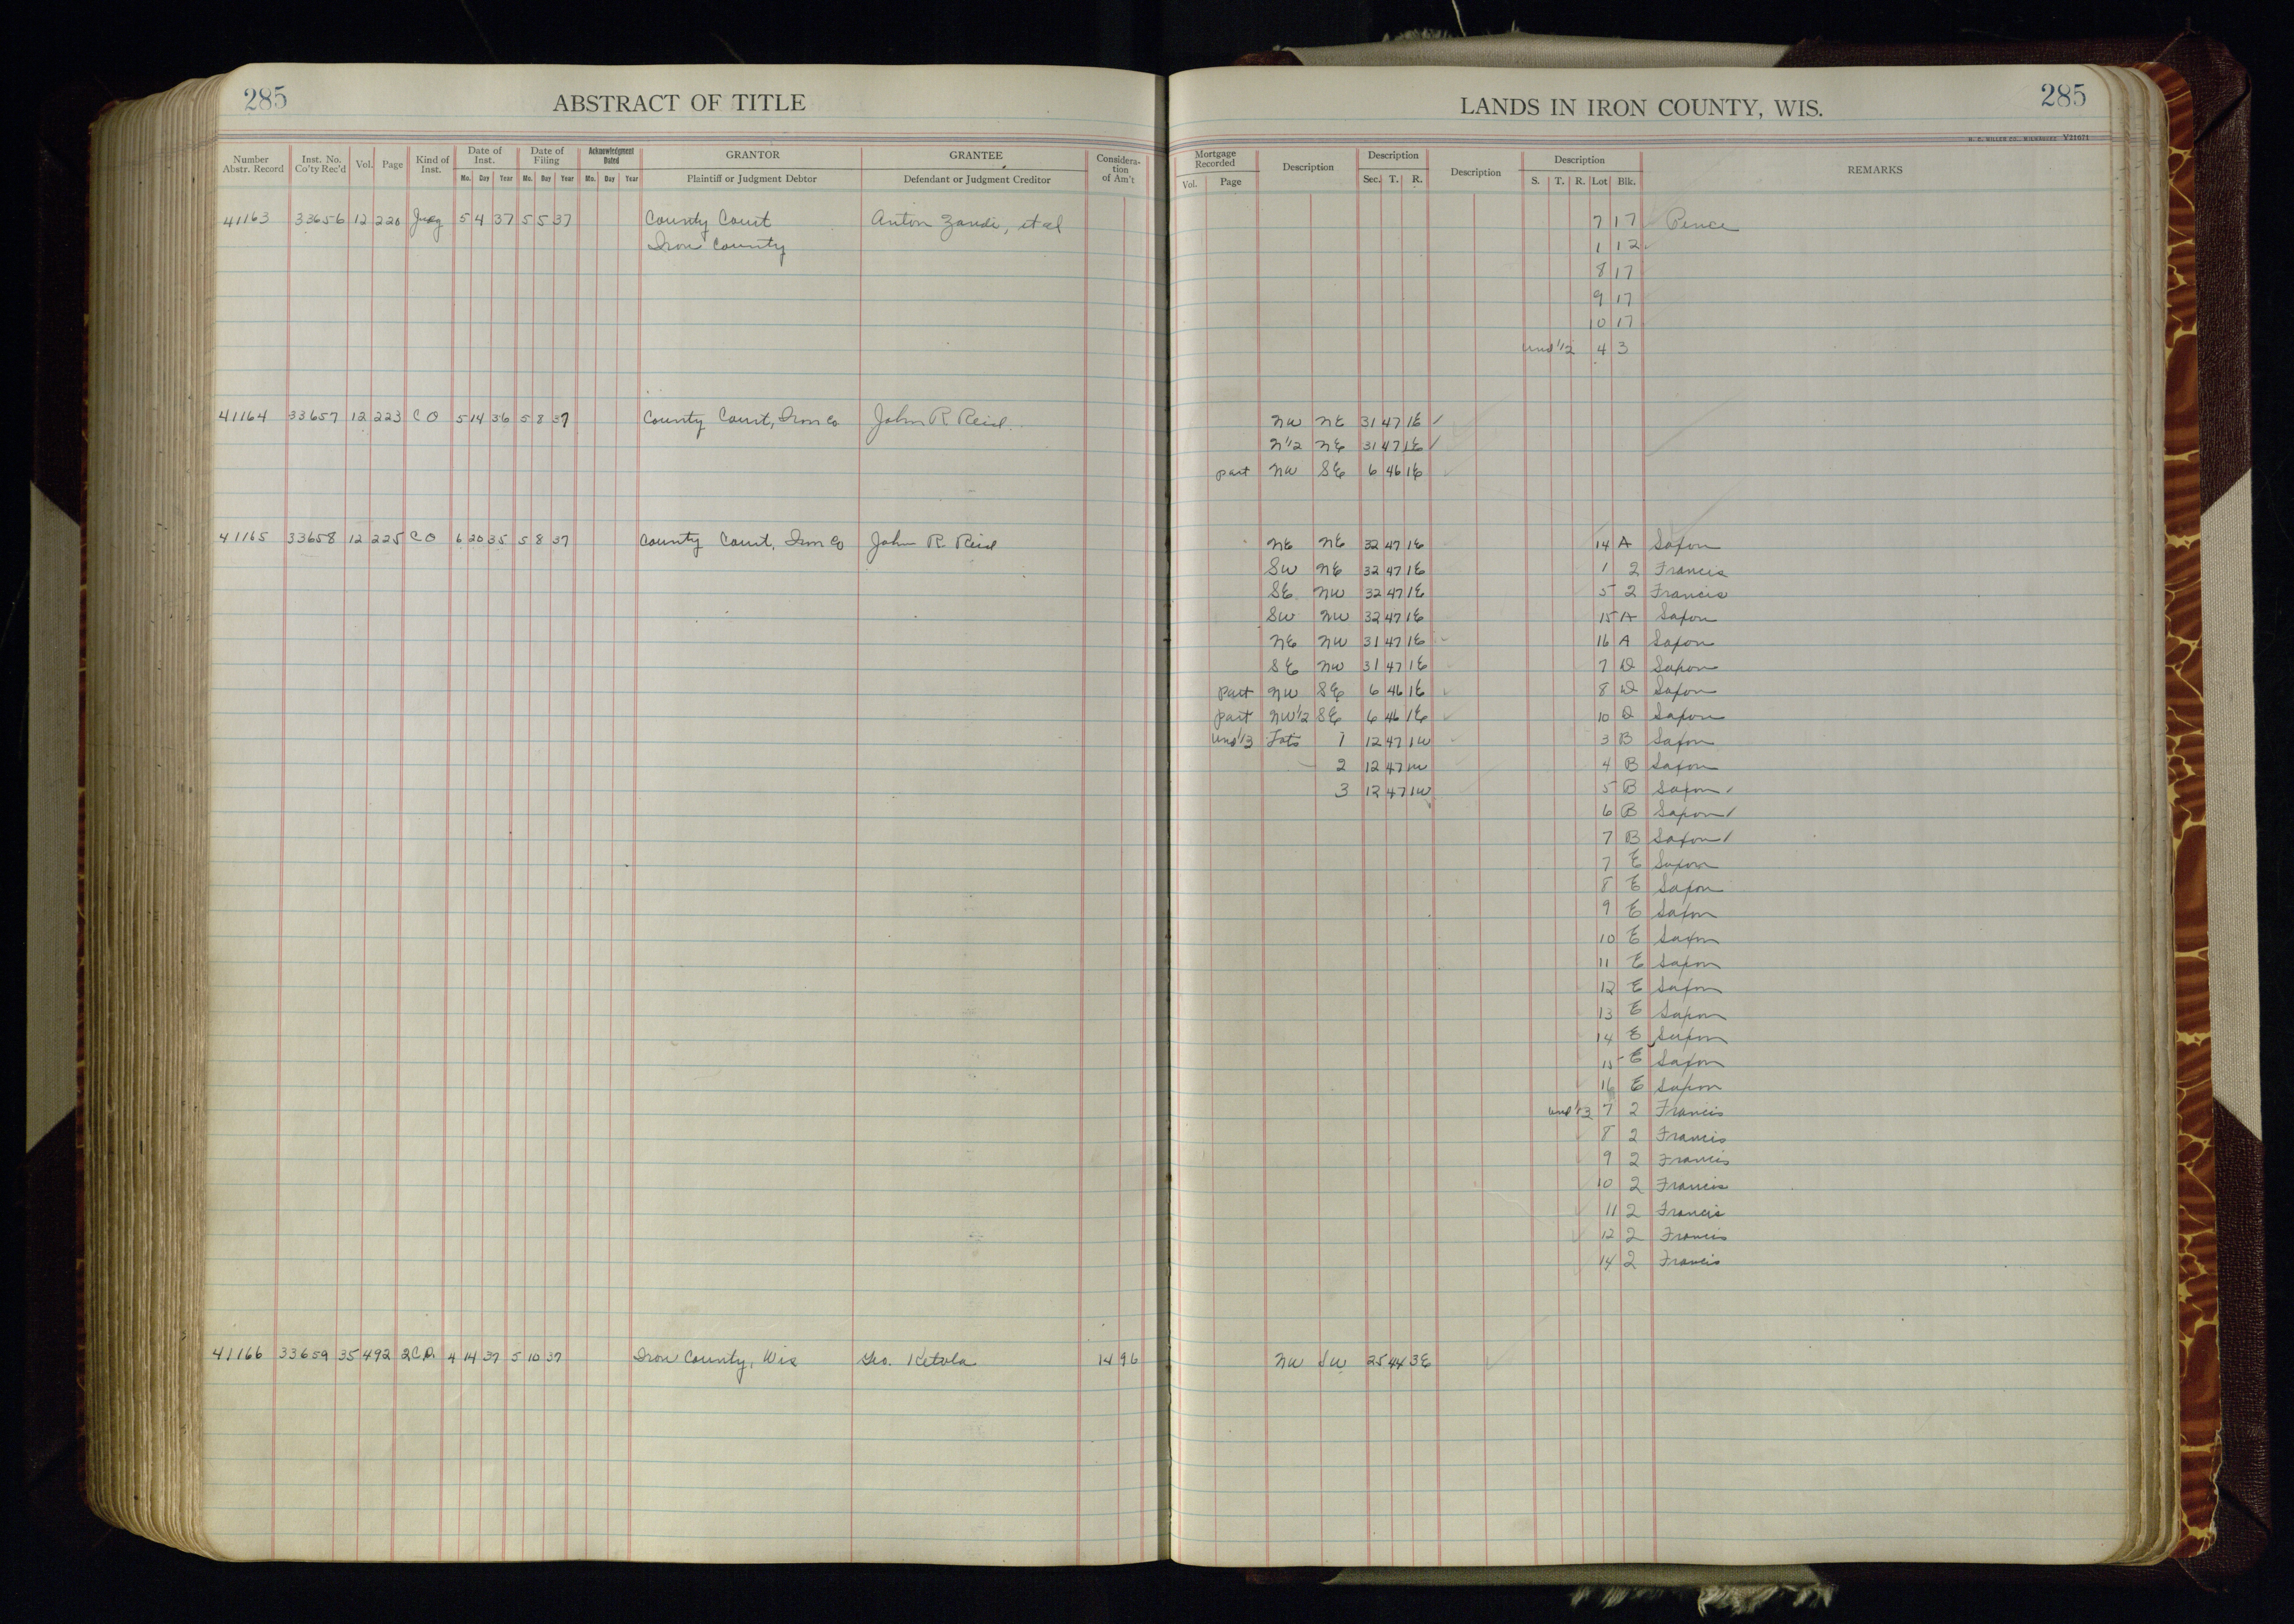 285 ABSTRACT OF TITLE
Number Abstr. Record Inst. No. Co'ty Rec'd Vol. Page Kind of Inst. Date of Inst. Mo. Day Year Date of Filing Mo. Day Year Acknowledgment Dated Mo. Day Year GRANTOR Plaintiff or Judgment Debtor GRANTEE Defendant or Judgment Creditor Consideration of Am't
41163 33656 12 220 5 4 37 5 5 37 County Court Anton et al
Iron County
41164 33657 12 223 C O 5 14 36 5 8 37 County Court, Iron Co John R Reid
41165 33658 12 225 C O 6 20 35 5 8 37 County Court, Iron Co John R. Reid
41166 33659 35 492 4 14 37 5 10 37 Iron County, Wis Geo. Ketola 14 96
LANDS IN IRON COUNTY, WIS. 285
H. C. MILLER CO., MILWAUKEE V21671
Mortgage Recorded Vol. Page Description Description Sec. T. R. Description Description S. T. R. Lot Blk. REMARKS
7 17 Pence
1 12
8 17
9 17
10 17
und 1/2 4 3
NW NE 31 47 1E
N1/2 NE 31 47 1E
part NW SE 6 46 1E
NE NE 32 47 1E 14 A Saxon
SW NE 32 47 1E 1 2 Francis
SE NW 32 47 1E 5 2 Francis
SW NW 32 47 1E 15 A Saxon
NE NW 31 47 1E 16 A Saxon
SE NW 31 47 1E 7 D Saxon
part NW SE 6 46 1E 8 D Saxon
part NW1/2 SE 6 46 1E 10 D Saxon
und 1/3 Lots 1 12 47 1W 3 B Saxon
2 12 47 1W 4 B Saxon
3 12 47 1W 5 B Saxon
6 B Saxon
7 B Saxon
7 E Saxon
8 E Saxon
9 E Saxon
10 E Saxon
11 E Saxon
12 E Saxon
13 E Saxon
14 E Saxon
15 E Saxon
16 E Saxon
und 1/3 7 2 Francis
8 2 Francis
9 2 Francis
10 2 Francis
11 2 Francis
12 2 Francis
14 2 Francis
NW SW 25 44 3E